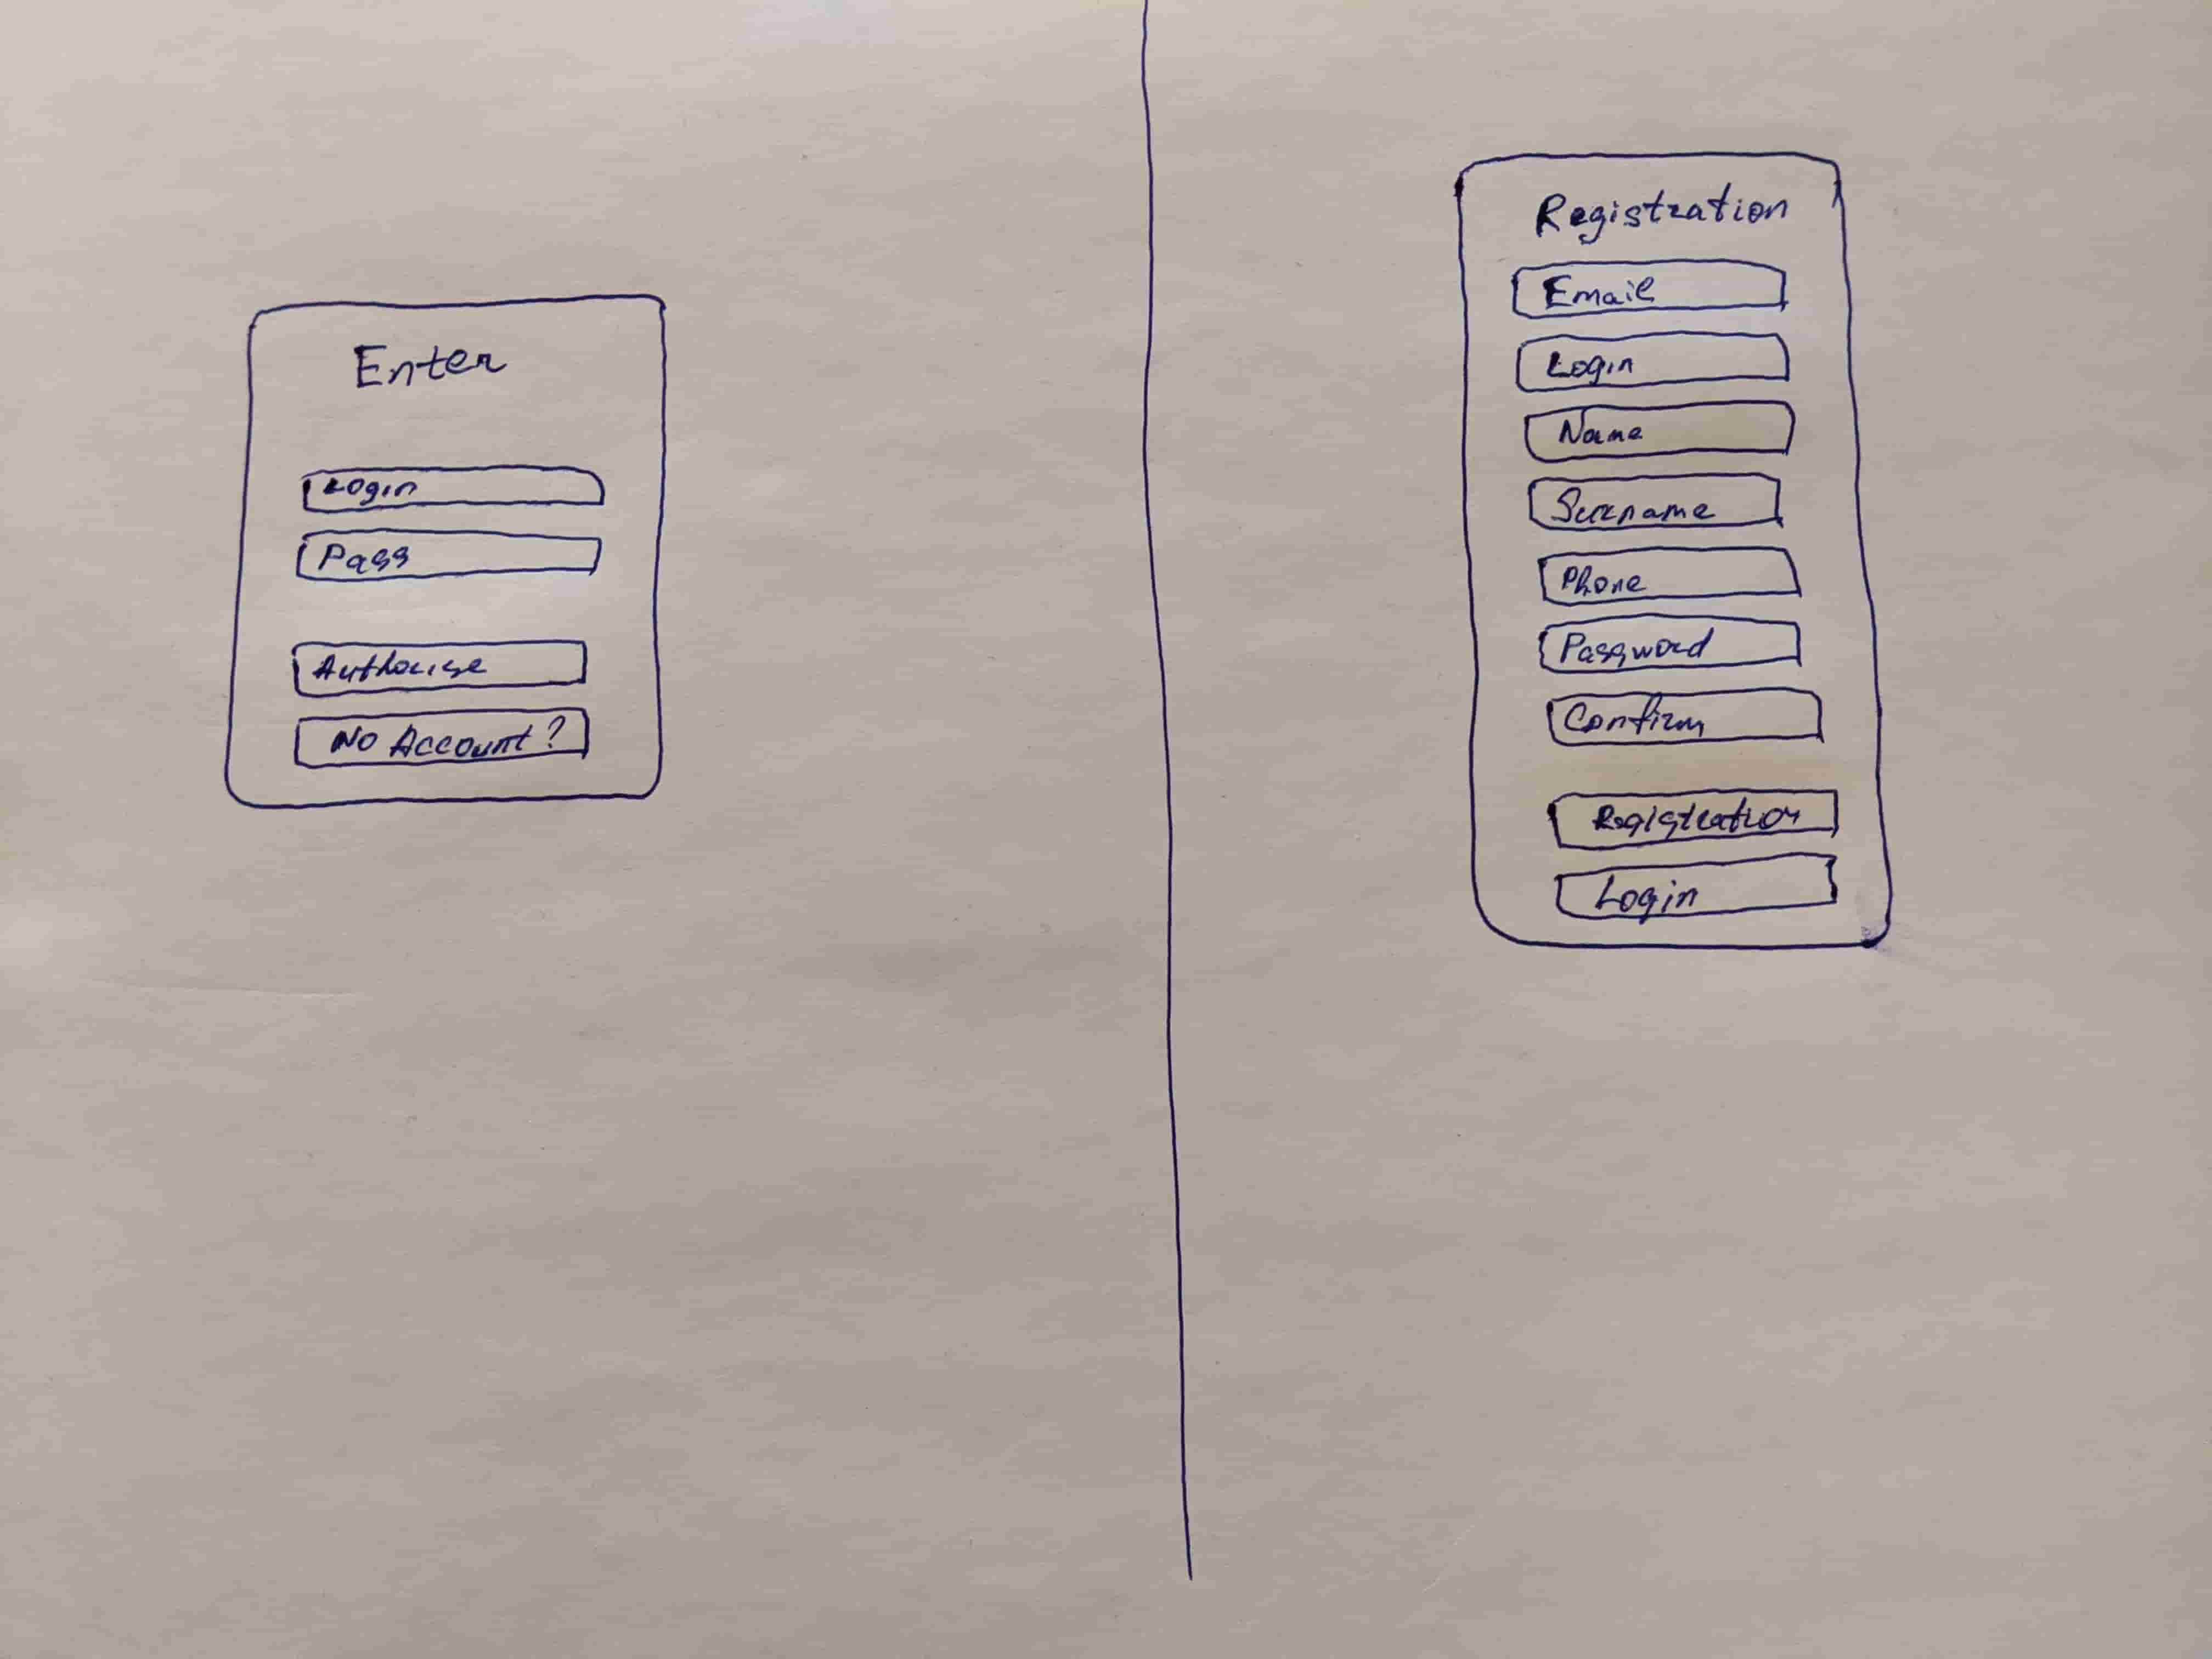 Enter
Login
Pass
Authorise
No Account?
Registration
Email
Login
Name
Surname
Phone
Password
Confirm
Registration
Login